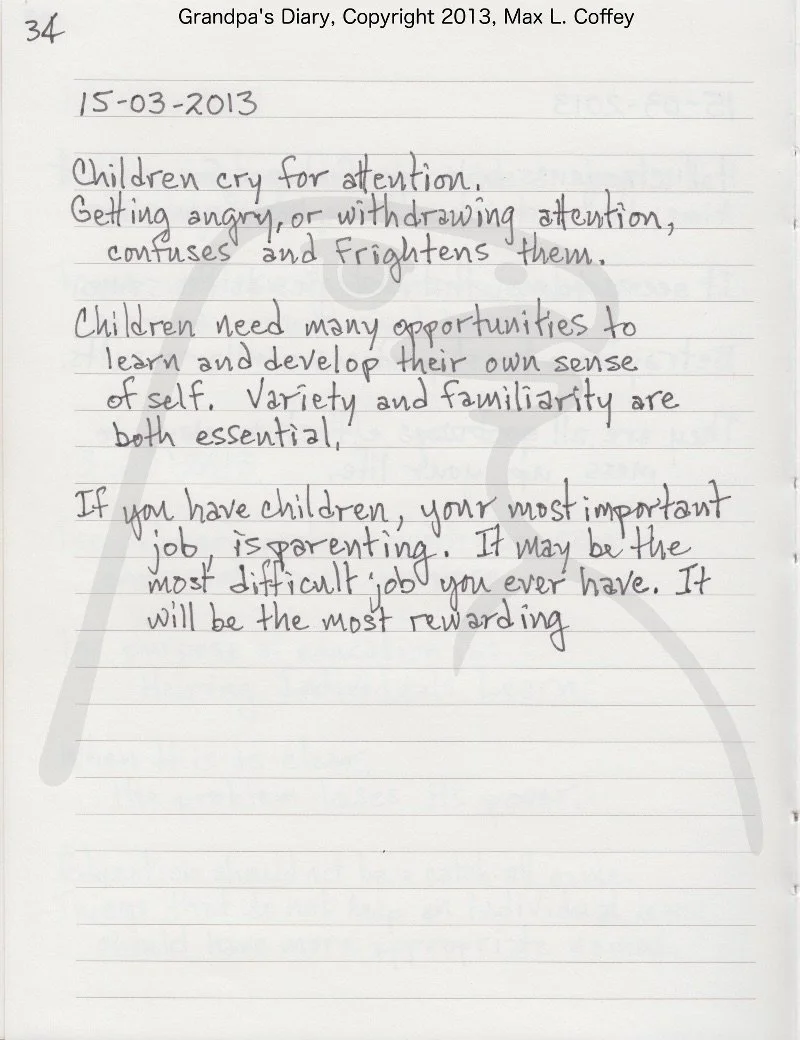 Grandpa's Diary, Copyright 2013, Max L. Coffey
34
15-03-2013
Children cry for attention.
Getting angry, or withdrawing attention,
confuses and frightens them.
Children need many opportunities to
learn and develop their own sense
of self. Variety and familiarity are
both essential.
If you have children, your most important
job, is parenting. It may be the
most difficult job you ever have. It
will be the most rewarding